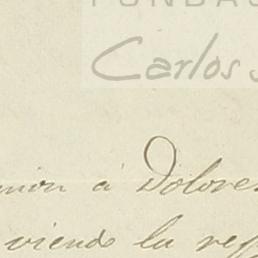 FUNDAC
Carlos
nion á Dolores
viendo la ref